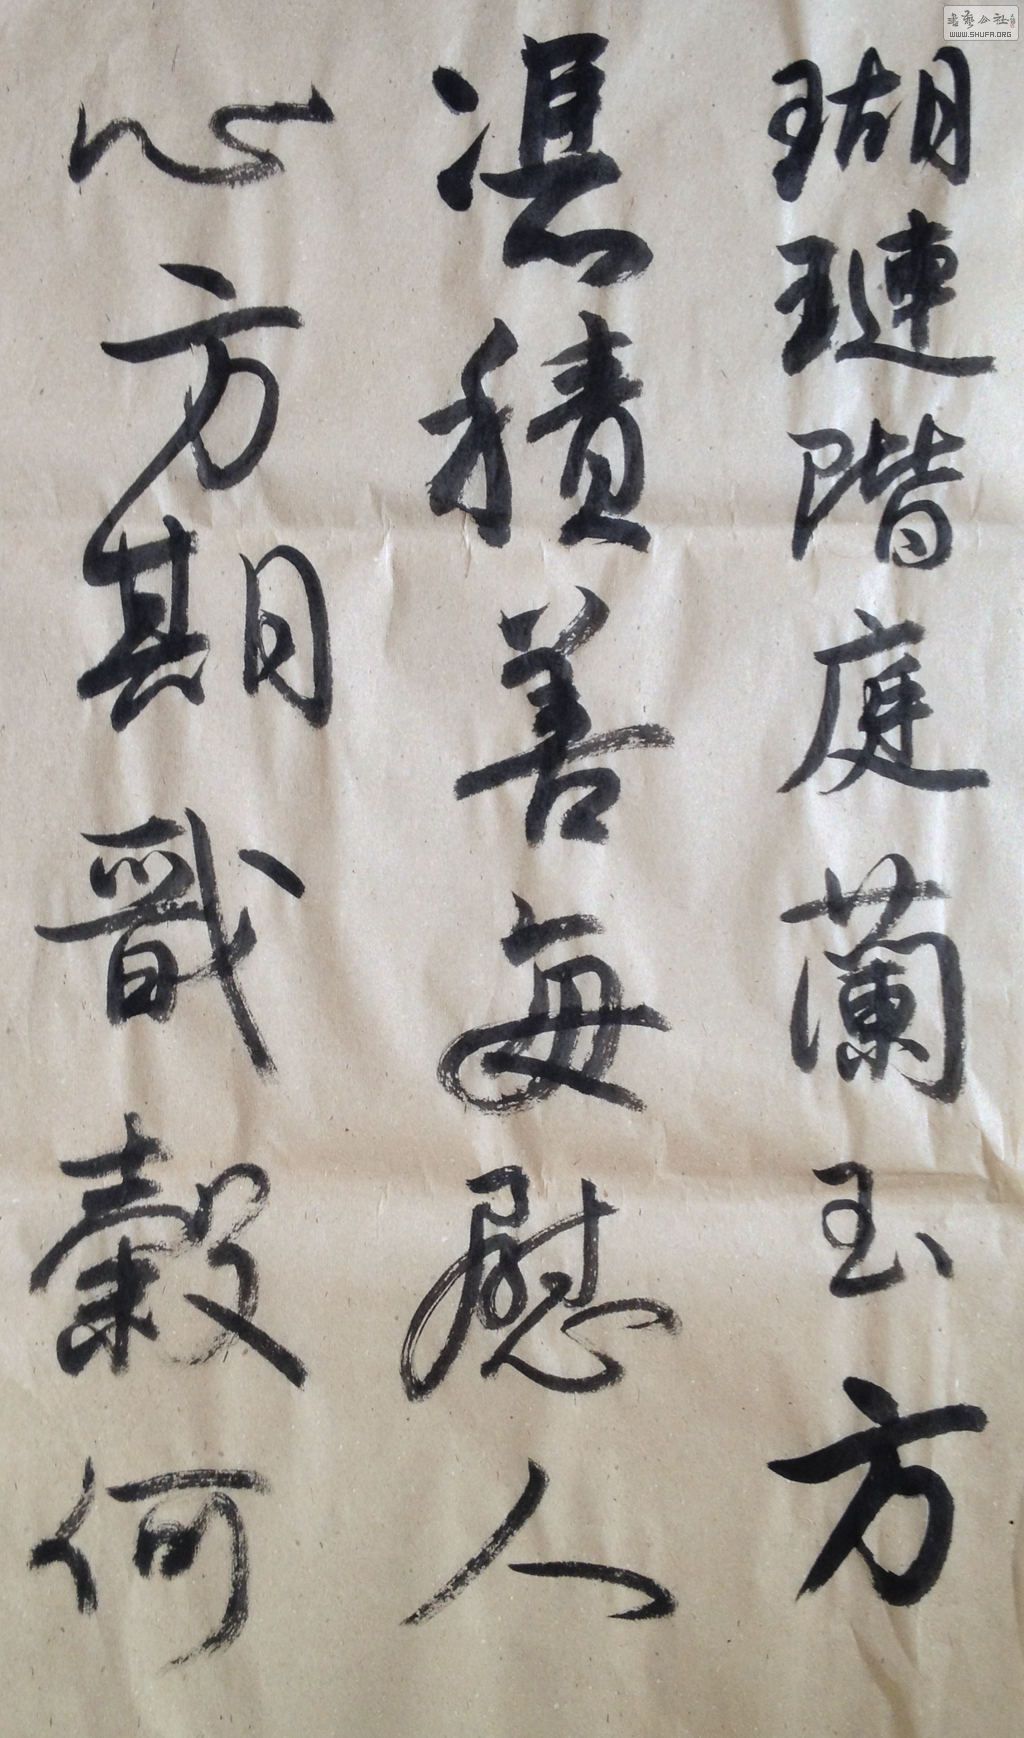 瑚璉階庭蘭玉方
憑積善每慰人
心方期戩穀何
書藝公社
WWW.SHUFA.ORG